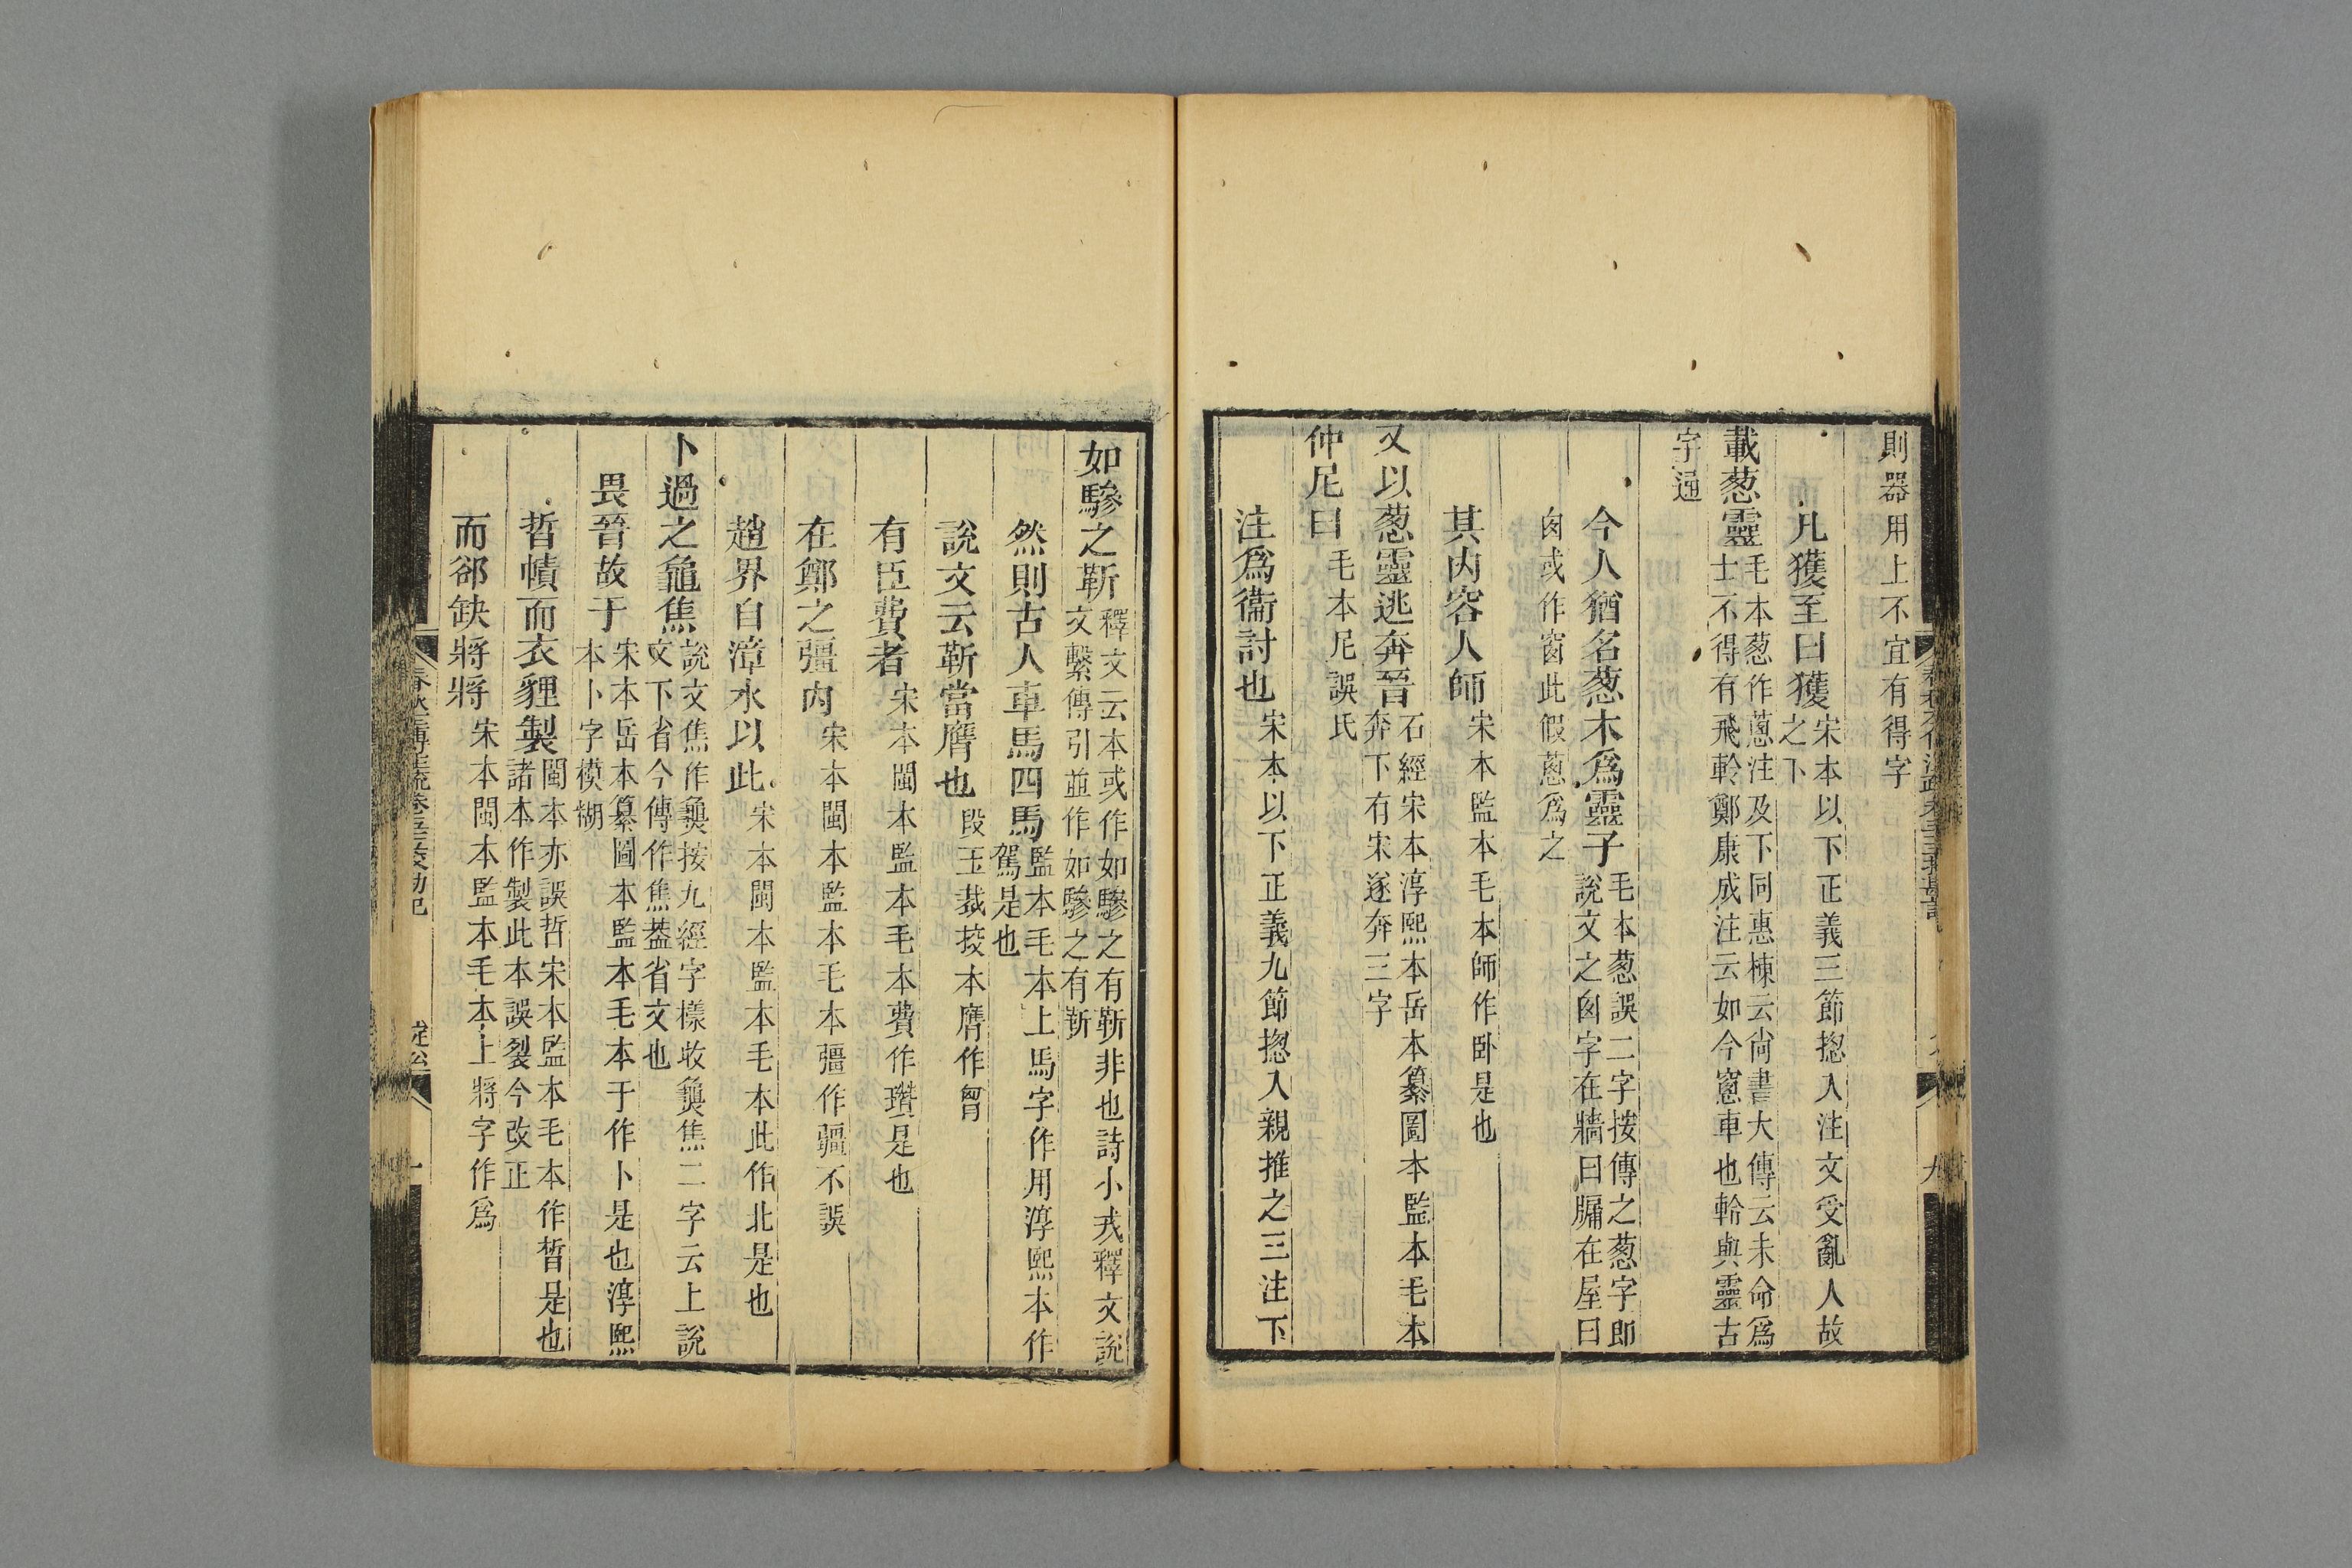 則器用上不宜有得字
凡獲至曰獲宋本以下正義三節揔入注文受亂人故之下
載葱靈毛本葱作蔥注及下同惠棟云尚書大傳云未命爲士不得有飛軨鄭康成注云如今窻車也軨與靈古
字通
今人猶名葱木爲靈子毛本葱誤二字按傳之葱字卽說文之囪字在牆曰牖在屋曰
囪或作窗此假蔥爲之
其内容人師宋本監本毛本師作卧是也
又以葱靈逃奔晉石經宋本淳熙本岳本纂圖本監本毛本奔下有宋遂奔三字
仲尼曰毛本尼誤氏
注爲衞討也宋本以下正義九節揔入親推之三注下
如驂之靳釋文云本或作如驂之有靳非也詩小戎釋文說文繫傳引並作如驂之有靳
然則古人車馬四馬監本毛本上馬字作用淳熙本作駕是也
說文云靳當膺也段玉裁挍本膺作匈
有臣費者宋本閩本監本毛本費作瓚是也
在鄭之彊内宋本閩本監本毛本彊作疆不誤
趙界自漳水以此宋本閩本監本毛本此作北是也
卜過之龜焦說文焦作𤒅按九經字樣收𤒅焦二字云上說文下省今傳作焦葢省文也
畏晉故于宋本岳本纂圖本監本毛本于作卜是也淳熙本卜字模糊
晢幘而衣貍製閩本亦誤哲宋本監本毛本作皙是也諸本作製此本誤裂今改正
而郤缺將將宋本閩本監本毛本上將字作爲